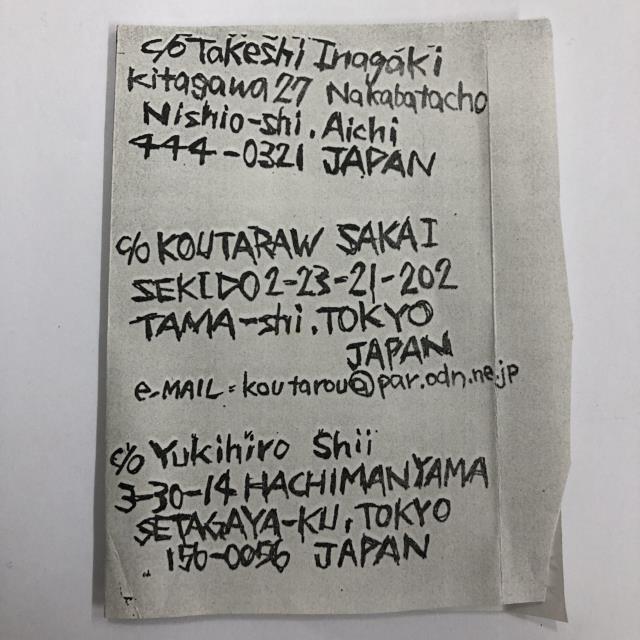 c/o Takeshi Inagaki
Kitagawa 27 Nakabatacho
Nishio-shi, Aichi
444-0321 JAPAN
c/o KOUTARAW SAKAI
SEKIDO 2-23-21-202
TAMA-shi, TOKYO
JAPAN
e-MAIL = koutarou@par.odn.ne.jp
c/o Yukihiro Shii
3-30-14 HACHIMANYAMA
SETAGAYA-KU, TOKYO
156-0056 JAPAN